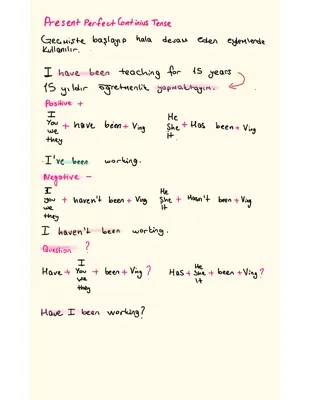 Present Perfect Continius Tense
Geçmişte başlayıp hala devam eden eylemlerde
kullanılır.
I have been teaching for 15 years
15 yıldır öğretmenlik yapmaktayım.
Positive +
I
You
we
they
+ have been + Ving
He
She
It
+ Has been + Ving
I've been working.
Negative -
I
you
we
they
+ haven't + been + Ving
He
She
It
+ Hasn't + been + Ving
I haven't been working.
Question ?
Have + I
You
we
they
+ been + Ving ?
Has + He
She
it
+ been + Ving ?
Have I been working?